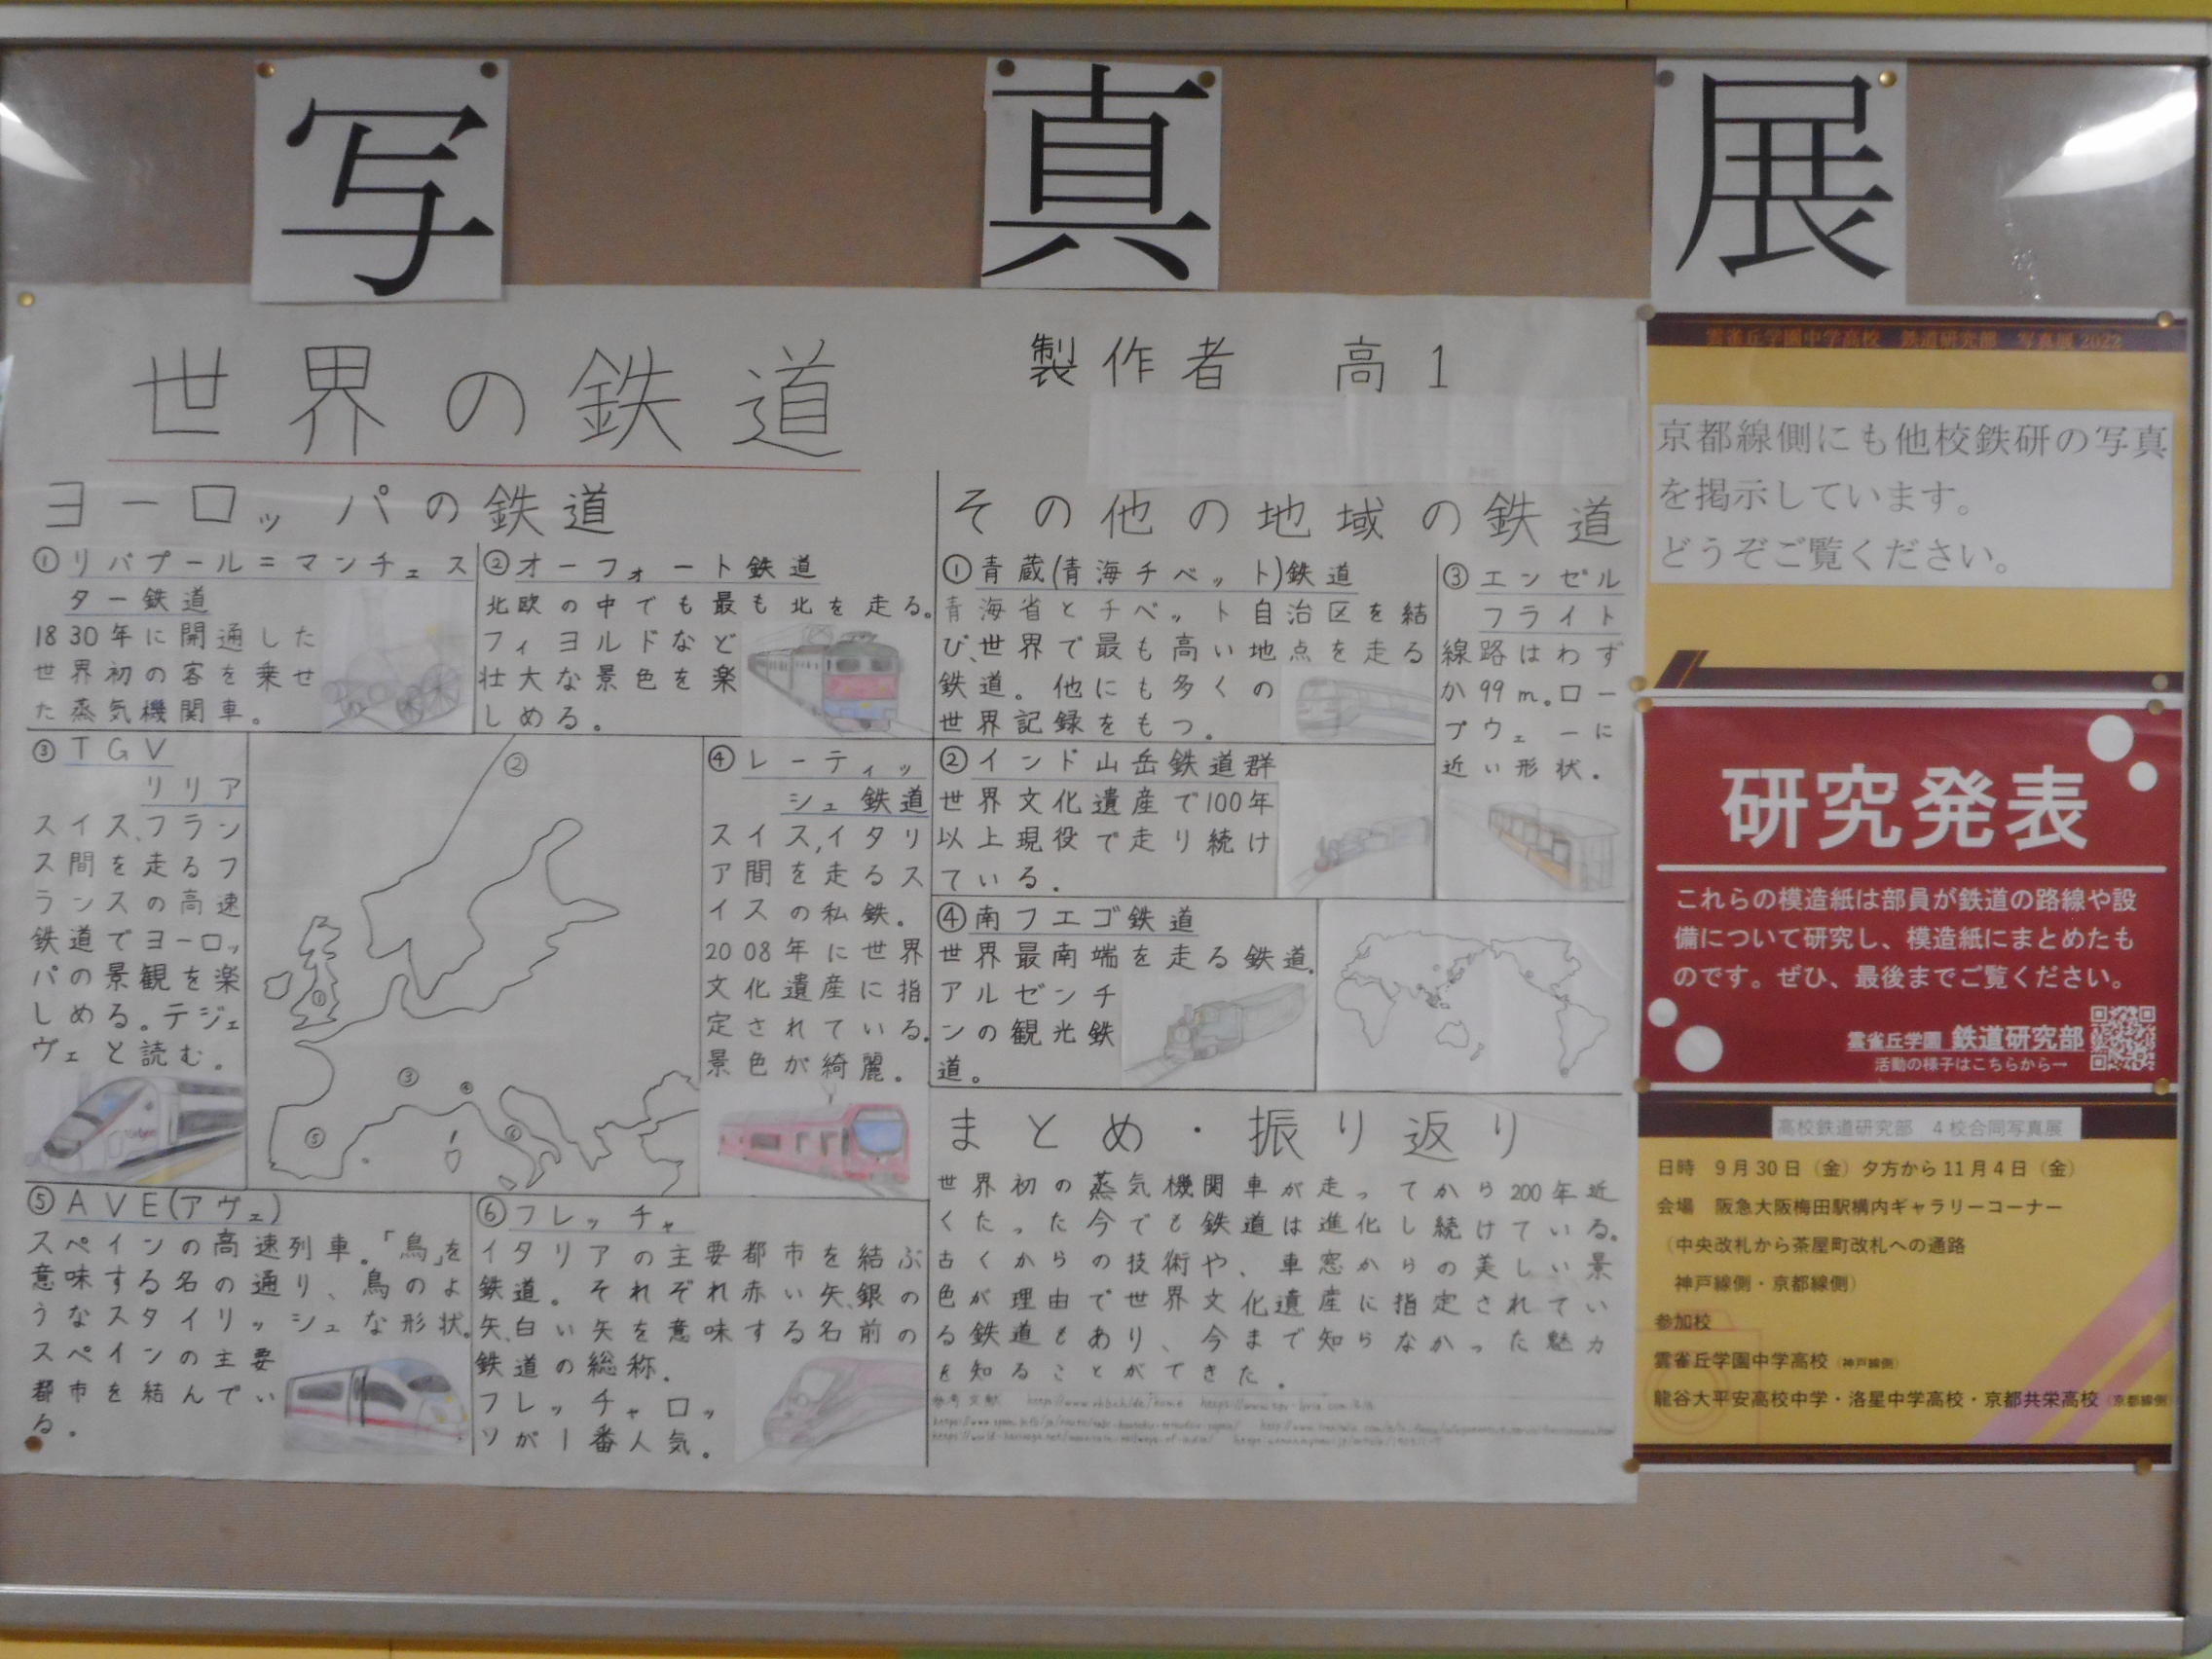 写真展
世界の鉄道
製作者 高1
ヨーロッパの鉄道
①リバプール=マンチェス
ター鉄道
1830年に開通した
世界初の客を乗せ
た蒸気機関車。
②オーフォート鉄道
北欧の中でも最も北を走る。
フィヨルドなど
壮大な景色を楽
しめる。
③TGV
リリア
スイス、フラン
ス間を走るフ
ランスの高速
鉄道でヨーロッ
パの景観を楽
しめる。テジェ
ヴェと読む。
②
①
③
④
⑤
⑥
④レーティッ
シュ鉄道
スイス,イタリ
ア間を走るス
イスの私鉄。
2008年に世界
文化遺産に指
定されている。
景色が綺麗。
⑤AVE(アヴェ)
スペインの高速列車。「鳥」を
意味する名の通り、鳥のよ
うなスタイリッシュな形状。
スペインの主要
都市を結んでい
る。
⑥フレッチャ
イタリアの主要都市を結ぶ
鉄道。それぞれ赤い矢、銀の
矢、白い矢を意味する名前の
鉄道の総称。
フレッチャロッ
ソが1番人気。
その他の地域の鉄道
①青蔵(青海チベット)鉄道
青海省とチベット自治区を結
び、世界で最も高い地点を走る
鉄道。他にも多くの
世界記録をもつ。
②インド山岳鉄道群
世界文化遺産で100年
以上現役で走り続け
ている.
③エンゼル
フライト
線路はわず
か99m。ロー
プウェーに
近い形状.
④南フエゴ鉄道
世界最南端を走る鉄道.
アルゼンチ
ンの観光鉄
道。
まとめ・振り返り
世界初の蒸気機関車が走ってから200年近
くたった今でも鉄道は進化し続けている。
古くからの技術や、車窓からの美しい景
色が理由で世界文化遺産に指定されてい
る鉄道もあり、今まで知らなかった魅力
を知ることができた.
参考文献
雲雀丘学園中学高校 鉄道研究部 写真展2022
京都線側にも他校鉄研の写真
を掲示しています。
どうぞご覧ください。
研究発表
これらの模造紙は部員が鉄道の路線や設
備について研究し、模造紙にまとめたも
のです。ぜひ、最後までご覧ください。
雲雀丘学園 鉄道研究部
活動の様子はこちらから→
高校鉄道研究部 4校合同写真展
日時 9月30日(金)夕方から11月4日(金)
会場 阪急大阪梅田駅構内ギャラリーコーナー
(中央改札から茶屋町改札への通路
神戸線側・京都線側)
参加校
雲雀丘学園中学高校(神戸線側)
龍谷大平安高校中学・洛星中学高校・京都共栄高校(京都線側)